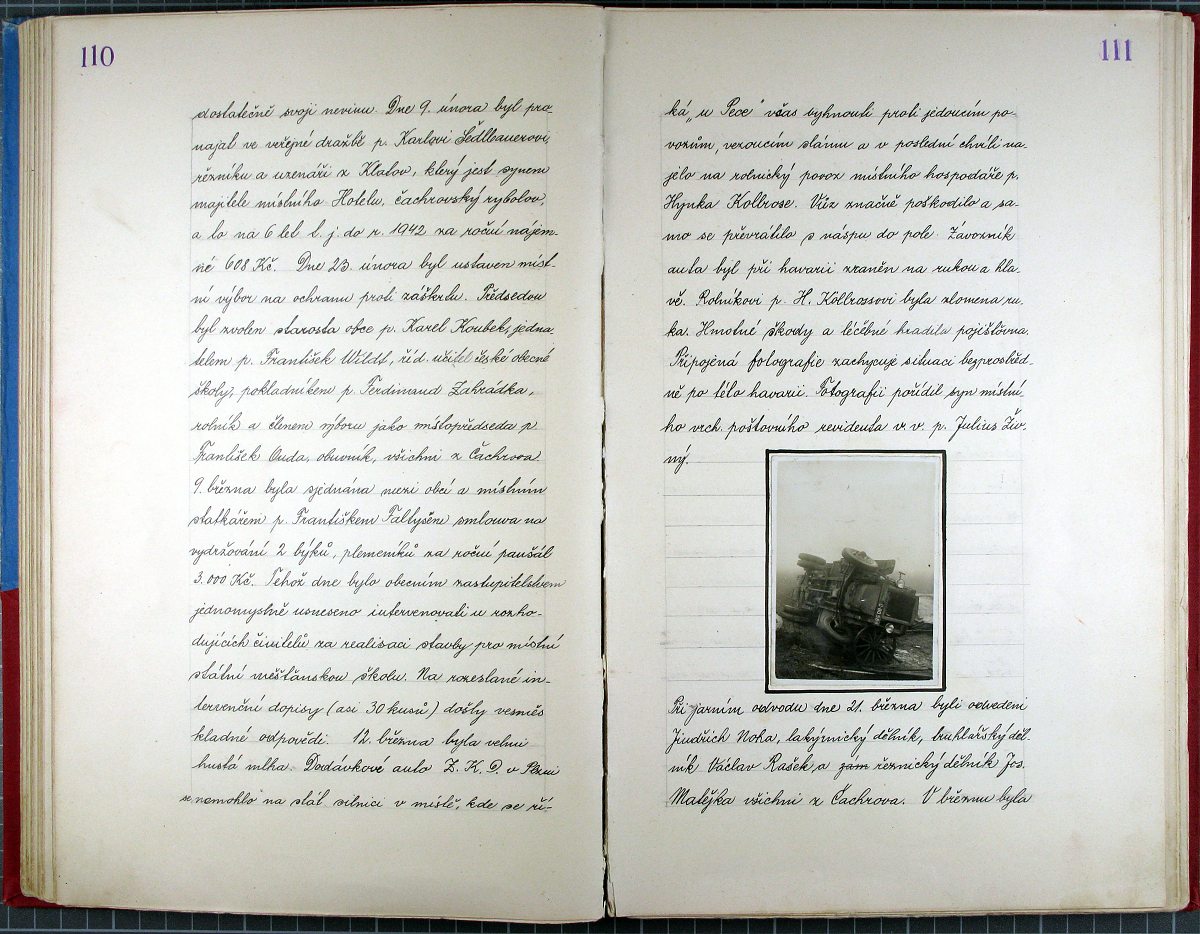 110
dostatečně svoji nevinu. Dne 9. února byl pro-
najat ve veřejné dražbě p. Karlovi Sedlbauerovi,
řezníku a uzenáři z Klatov, který jest synem
majitele místního Hotelu, čachrovský rybolov,
a to na 6 let t. j. do r. 1942 za roční nájem-
né 608 Kč. Dne 23. února byl ustaven míst-
ní výbor na ochranu proti záškrtu. Předsedou
byl zvolen starosta obce p. Karel Koubek, jedna-
telem p. František Wildt, říd. učitel české obecné
školy, pokladníkem p. Ferdinand Zahrádka,
rolník a členem výboru jako místopředseda p.
František Ouda, obuvník, všichni z Čachrova
9. března byla sjednána mezi obcí a místním
statkářem p. Františkem Faltyšem smlouva na
vydržování 2 býků, plemeníků za roční paušál
3.000 Kč. Téhož dne bylo obecním zastupitelstvem
jednomyslně usneseno intervenovati u rozho-
dujících činitelů za realisaci stavby pro místní
státní měšťanskou školu. Na rozeslané in-
tervenční dopisy (asi 30 kusů) došly vesměs
kladné odpovědi. 12. března byla velmi
hustá mlha. Dodávkové auto Z. K. D. v Plzni
se nemohlo na stát. silnici v místě, kde se ří-
111
ká „u Pece" včas vyhnouti proti jedoucím po-
vozům, vezoucím slámu a v poslední chvíli na-
jelo na rolnický povoz místního hospodáře p.
Hynka Kollrose. Vůz značně poškodilo a sa-
mo se převrátilo s náspu do pole. Závozník
auta byl při havarii zraněn na rukou a hla-
vě. Rolníkovi p. H. Kollrossovi byla zlomena ru-
ka. Hmotné škody a léčebné hradila pojišťovna.
Připojená fotografie zachycuje situaci bezprostřed-
ně po této havarii. Fotografii pořídil syn místní-
ho vrch. poštovního revidenta v. v. p. Julius Živ-
ný.
Při jarním odvodu dne 21. března byli odvedeni
Jindřich Noha, lakýrnický dělník, truhlářský děl-
ník Václav Rašek, a zám řeznický dělník Jos.
Matějka všichni z Čachrova. V březnu byla